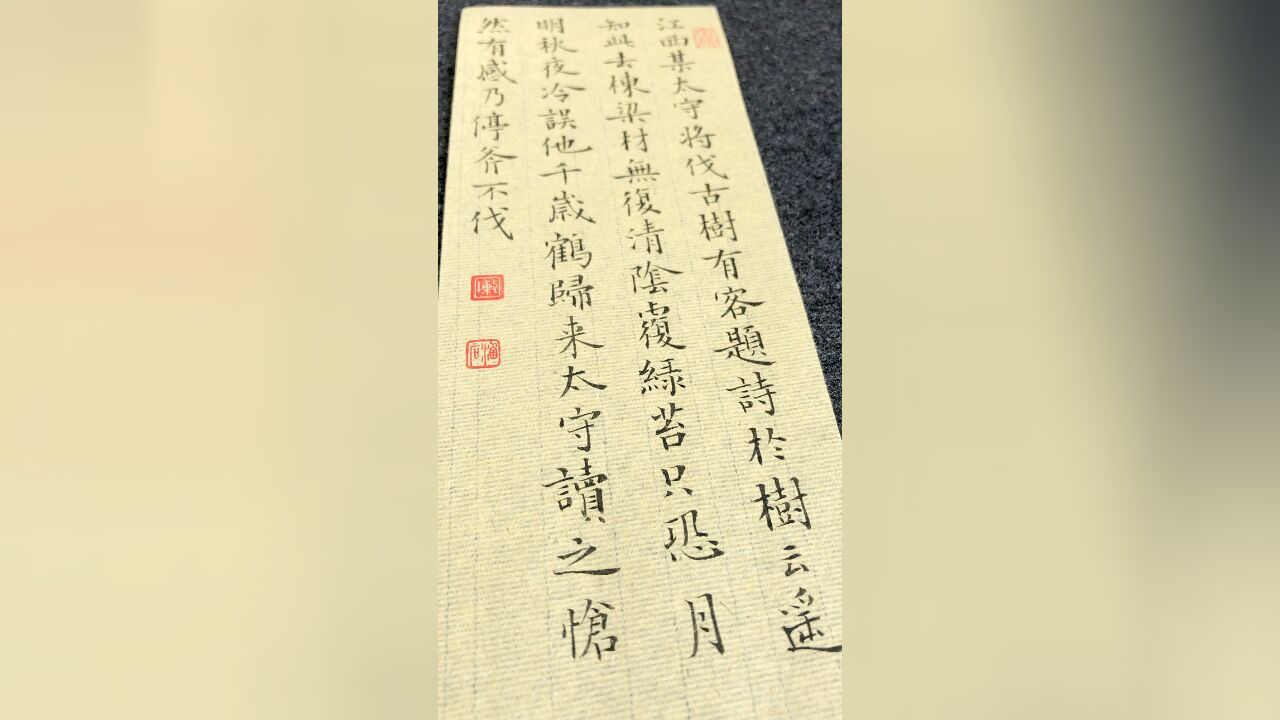 江西某太守将伐古樹有客題詩於樹云遥
知此去棟梁材無復清陰覆緑苔只恐月
明秋夜冷誤他千歲鶴歸来太守讀之愴
然有感乃停斧不伐